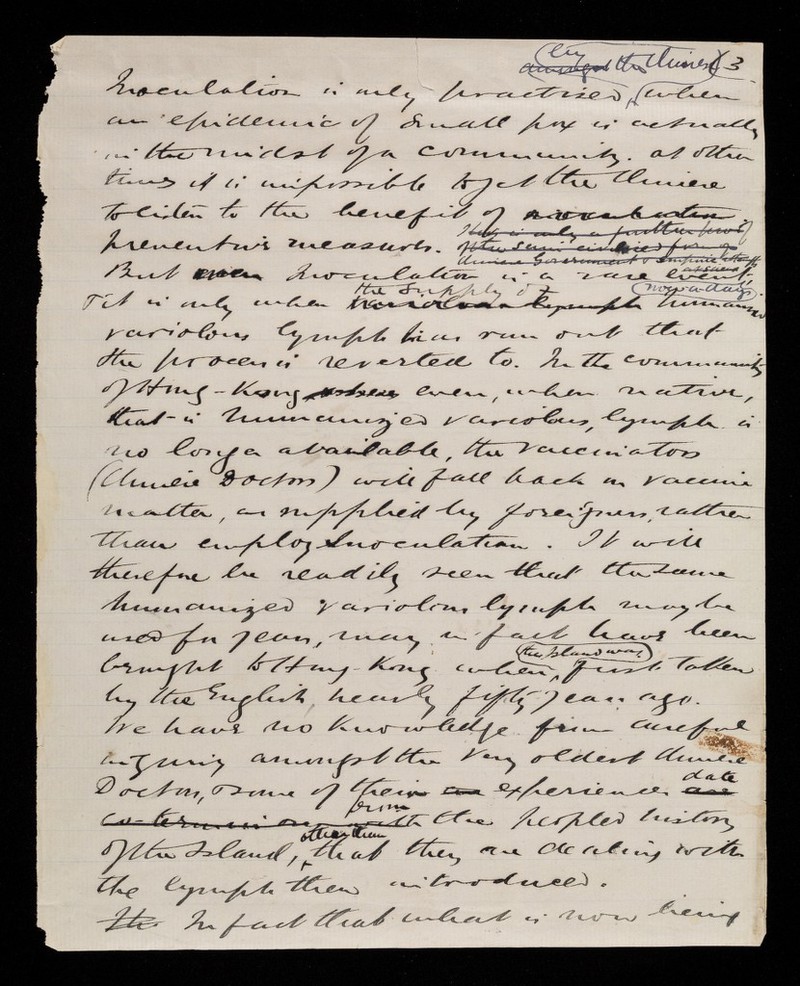 by
amongst the Chinese 3
Inoculation is only practised, when
an epidemic of Small pox is actually
in the midst of a community. at other
times it is impossible to get the Chinese
to listen to the benefit of inoculation
This is only a further proof
preventive measures. of the
Chinese Government
But even Inoculation is a rare event
nowadays.
the supply of
& it is only when variolous lymph humanized
variolous lymph has run out that
the process is reverted to. In the community
of Hong-Kong where even, when native,
that is humanized variolous, lymph is
no longer available, the Vaccinators
(Chinese Doctors) will fall back on vaccine
matter, as supplied by foreigners, rather
than employ Inoculation. It will
therefore be readily seen that the same
humanized variolous lymph may be
used for years, may in fact have been
the Island was
brought to Hong-Kong when, first taken
by the English, nearly fifty years ago.
We have no knowledge from careful
inquiry amongst the very oldest Chinese
date
Doctors, & some of their experiences are
from
co-terminous with the peopled history
other than
of the Island, that they are dealing with
the lymph then introduced.
In fact that what is now being